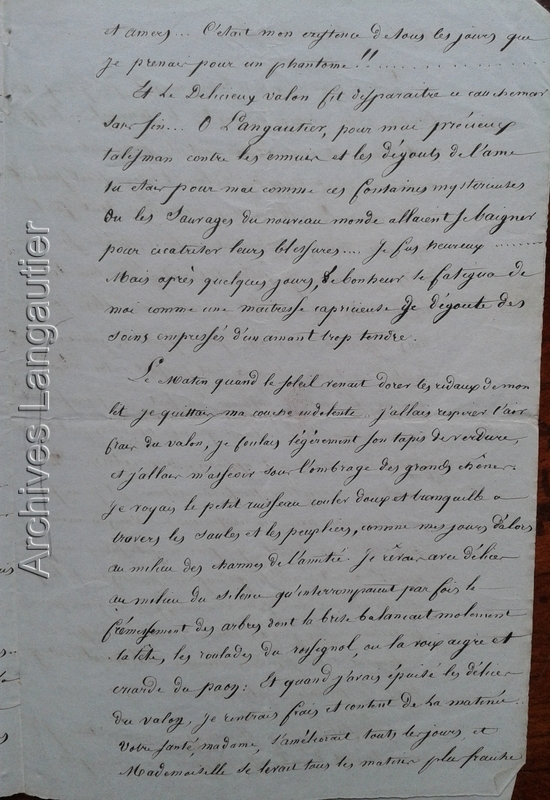 et amers... C'était mon existence de tous les jours que
je prenais pour un phantome!!
Et Le Delicieux valon fit disparaitre ce cauchemar
sans fin... O Langautier, pour moi précieux
talisman contre les ennuis et les dégouts de l'ame
tu etais pour moi comme ces fontaines mysterieuses
Ou les Sauvages du nouveau monde allaient se baigner
pour cicatriser leurs blessures.... Je fus heureux ......
Mais après quelques jours, le bonheur se fatigua de
moi comme une maitresse capricieuse se dégoute des
soins empressés d'un amant trop tendre.
Le Matin quand le soleil venait dorer les ridaux de mon
lit je quittais ma couche indolente j'allais respirer l'air
frais du valon, je foulais légèrement son tapis de verdure,
et j'allais m'asseoir sous l'ombrage des grands chênes.
je voyais le petit ruisseau couler doux et tranquille a
travers les saules et les peupliers, comme mes jours d'alors
au milieu des charmes de l'amitié. Je rêvais avec délice
au milieu du silence qu'interrompaient par fois le
frémissement des arbres dont la brise balancait molement
la tête, les roulades du rossignol, ou la voix aigre et
criarde du paon: Et quand j'avais épuisé les délices
du valon, je rentrais frais et content de La matinée.
Votre santé, madame, s'améliorait touts les jours, et
Mademoiselle se levait tous les matins plus fraiche
Archives Langautier